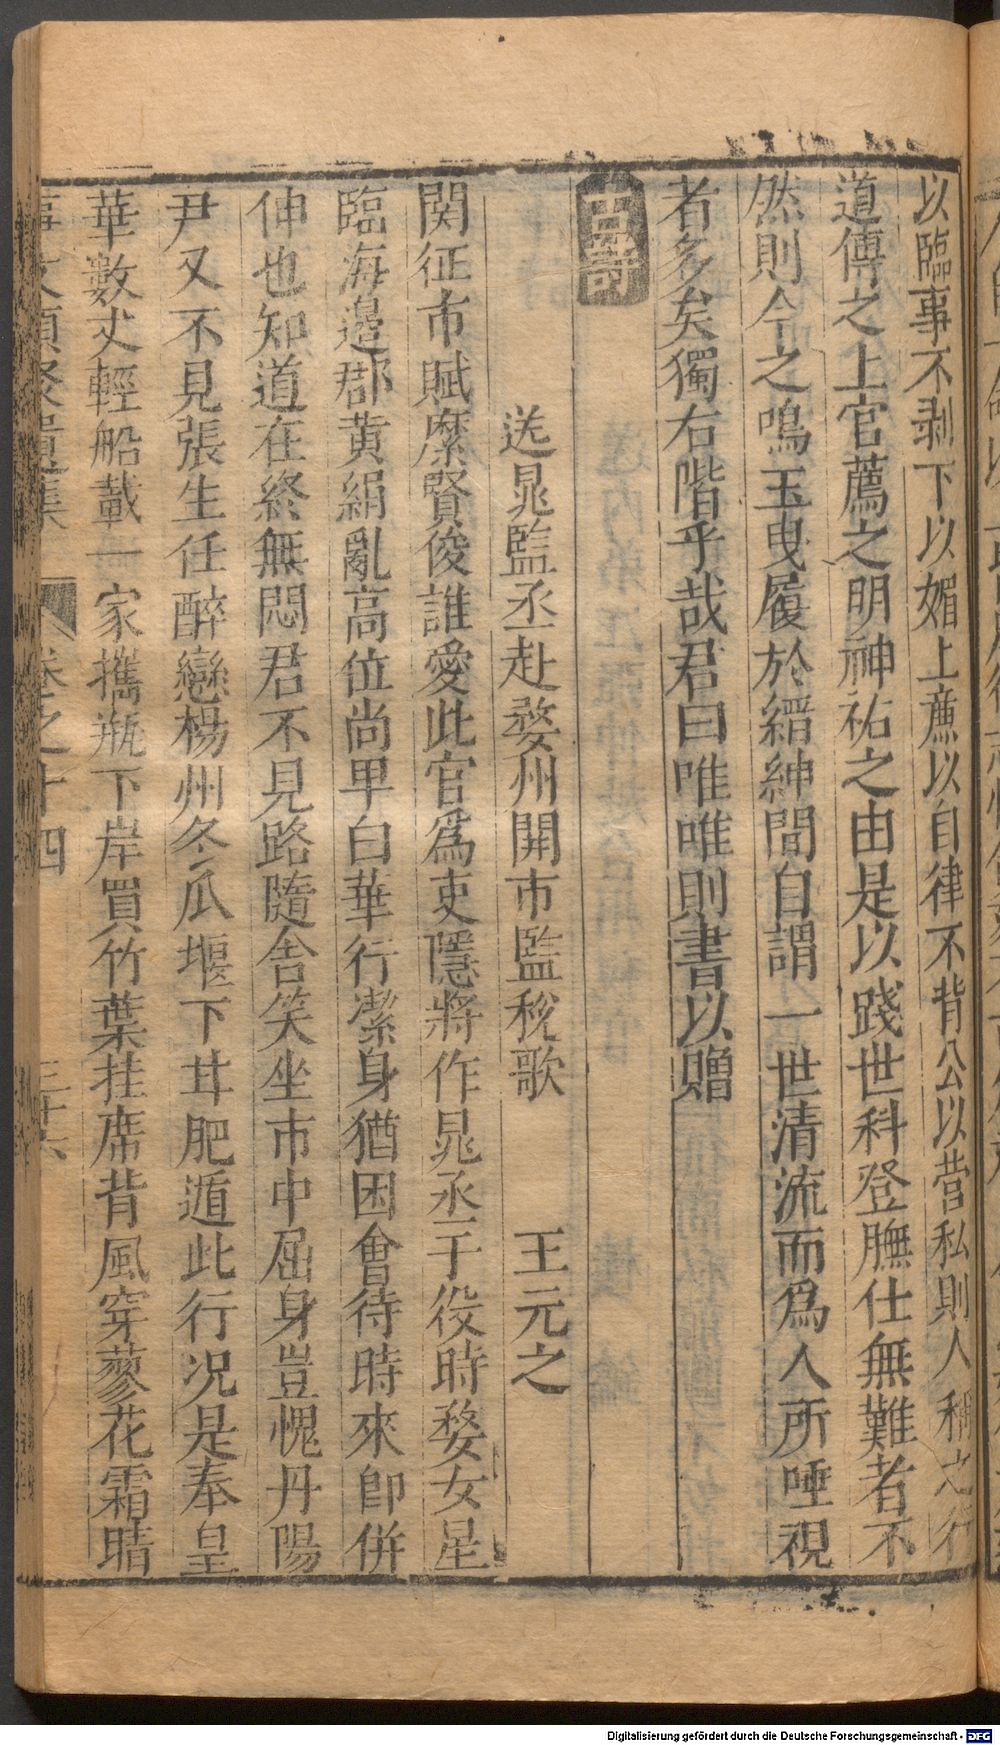 以臨事不剥下以媚上亷以自律不背公以營私則人稱之行
道傅之上官薦之明神祐之由是以踐世科登膴仕無難者不
然則今之鳴玉曳履於縉紳間自謂一世清流而爲人所唾視
者多矣獨右階乎哉君曰唯唯則書以贈
古詩
送晁監丞赴婺州開市監稅歌 王元之
関征市賦縻賢俊誰愛此官爲吏隱將作晁丞于役時婺女星
臨海邉郡黄絹亂高位尚卑白華行潔身猶困會待時來卽併
伸也知道在終無悶君不見路隨舍笑坐市中屈身豈愧丹陽
尹又不見張生任醉戀楊州冬瓜堰下甘肥遁此行况是奉皇
華數丈輕船載一家攜瓶下岸買竹葉挂席背風穿蓼花霜晴
事文類聚遺集 卷之十四 三十六
Digitalisierung gefördert durch die Deutsche Forschungsgemeinschaft - DFG